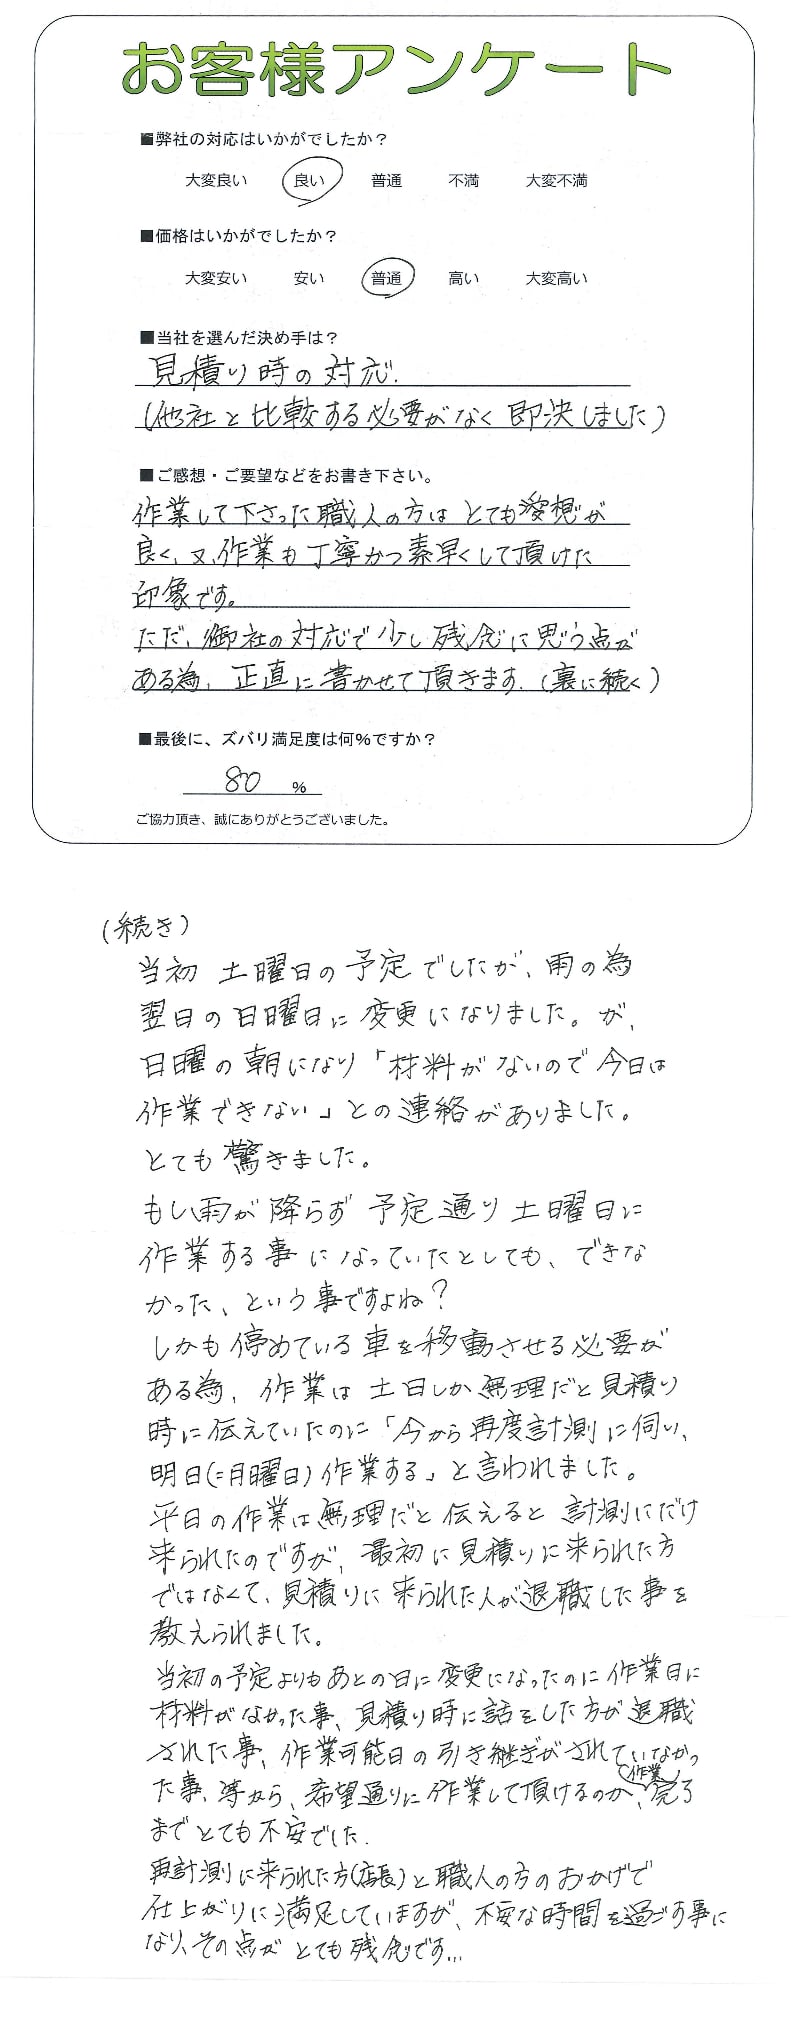 お客様アンケート
■弊社の対応はいかがでしたか？
大変良い 良い 普通 不満 大変不満
■価格はいかがでしたか？
大変安い 安い 普通 高い 大変高い
■当社を選んだ決め手は？
見積り時の対応.
(他社と比較する必要がなく即決しました)
■ご感想・ご要望などをお書き下さい。
作業して下さった職人の方はとても愛想が
良く、又、作業も丁寧かつ素早くして頂けた
印象です。
ただ、御社の対応で少し残念に思う点が
ある為、正直に書かせて頂きます.(裏に続く)
■最後に、ズバリ満足度は何%ですか？
80 %
ご協力頂き、誠にありがとうございました。
(続き)
当初 土曜日の予定でしたが、雨の為
翌日の日曜日に変更になりました。が、
日曜の朝になり「材料がないので今日は
作業できない」との連絡がありました。
とても驚きました。
もし雨が降らず予定通り土曜日に
作業する事になっていたとしても、できな
かった、という事ですよね？
しかも停めている車を移動させる必要が
ある為、作業は土日しか無理だと見積り
時に伝えていたのに「今から再度計測に伺い、
明日(=月曜日)作業する」と言われました。
平日の作業は無理だと伝えると計測にだけ
来られたのですが、最初に見積りに来られた方
ではなくて、見積りに来られた人が退職した事を
教えられました。
当初の予定よりもあとの日に変更になったのに作業日に
材料がなかった事、見積り時に話をした方が退職
された事、作業可能日の引き継ぎがされていなかっ
た事、等から、希望通りに作業して頂けるのか、(作業)完了
までとても不安でした.
再計測に来られた方(店長)と職人の方のおかげで
仕上がりに満足していますが、不安な時間を過ごす事に
なり、その点がとても残念です…